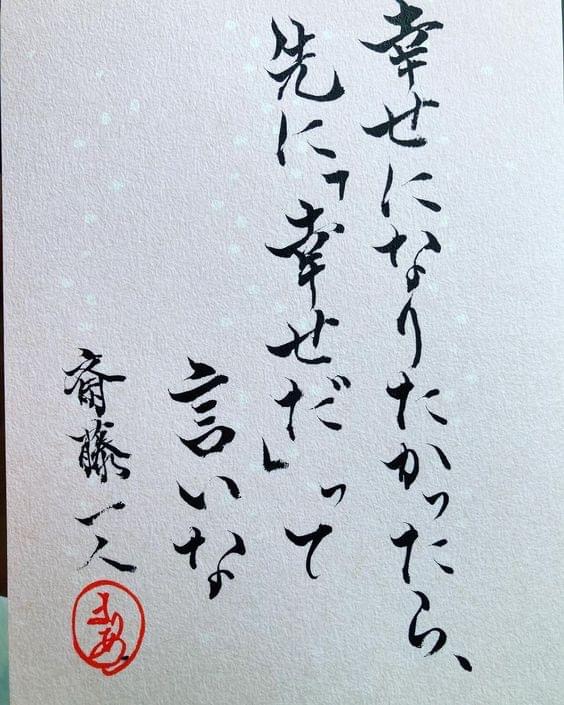 幸せになりたかったら、
先に「幸せだ」って
言いな
斎藤一人